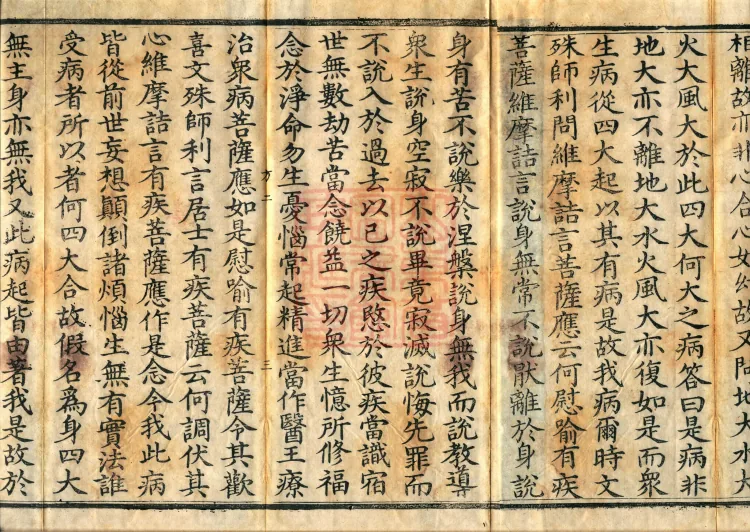 相離故亦非心合心如幻故又問地大水大
火大風大於此四大何大之病答曰是病非
地大亦不離地大水火風大亦復如是而衆
生病從四大起以其有病是故我病爾時文
殊師利問維摩詰言菩薩應云何慰喻有疾
菩薩維摩詰言說身無常不說猒離於身說
身有苦不說樂於涅槃說身無我而說教導
衆生說身空寂不說畢竟寂滅說悔先罪而
不說入於過去以已之疾愍於彼疾當識宿
世無數劫苦當念饒益一切衆生憶所修福
念於淨命勿生憂惱常起精進當作醫王療
方二 三
治衆病菩薩應如是慰喻有疾菩薩令其歡
喜文殊師利言居士有疾菩薩云何調伏其
心維摩詰言有疾菩薩應作是念今我此病
皆從前世妄想顛倒諸煩惱生無有實法誰
受病者所以者何四大合故假名爲身四大
無主身亦無我又此病起皆由著我是故於